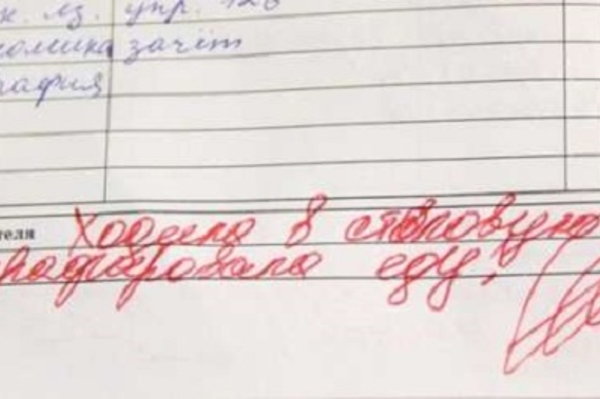 яз. упр.
омика зачёт
рафия
теля Ходила в столовую
графировала еду!